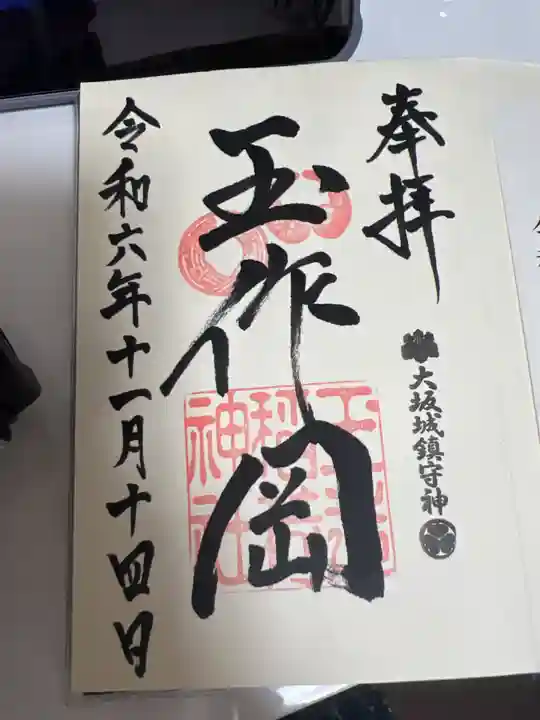 奉拝
大坂城鎮守神
玉作岡
玉造
稲荷
神社
令和六年十一月十四日